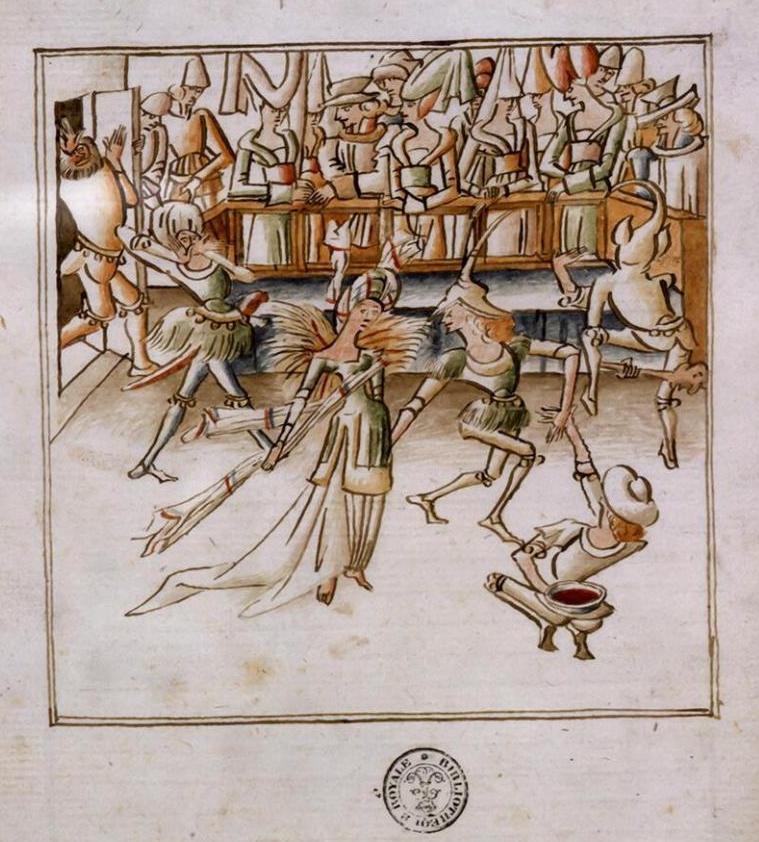 BIBLIOTHEQUE ROYALE